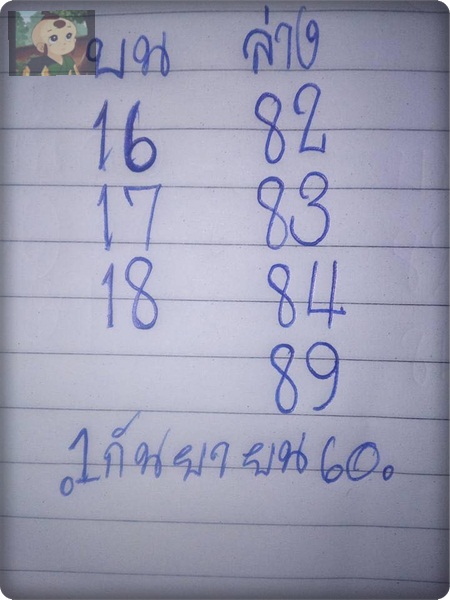 บน ล่าง
16 82
17 83
18 84
89
1 กันยายน 60.